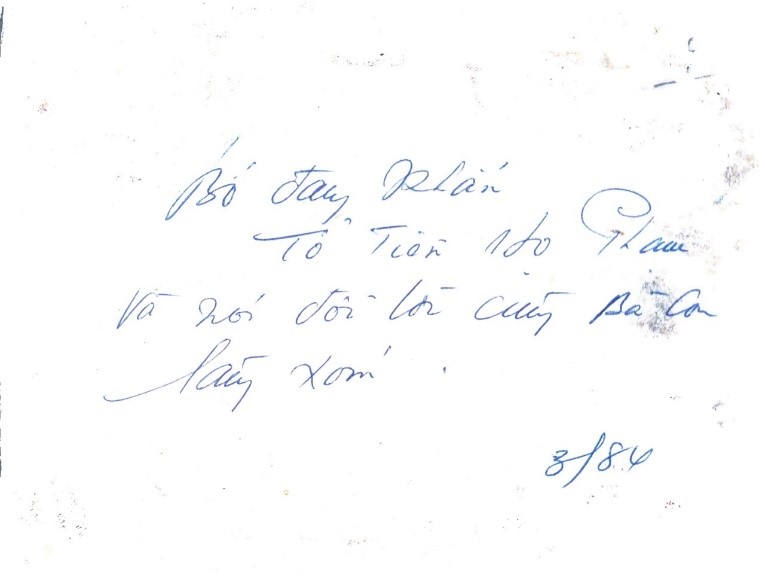 Bố đang khấn
Tổ Tiên Họ Phạm
Và nói đôi lời cùng Bà Con
làng xóm.
3/84